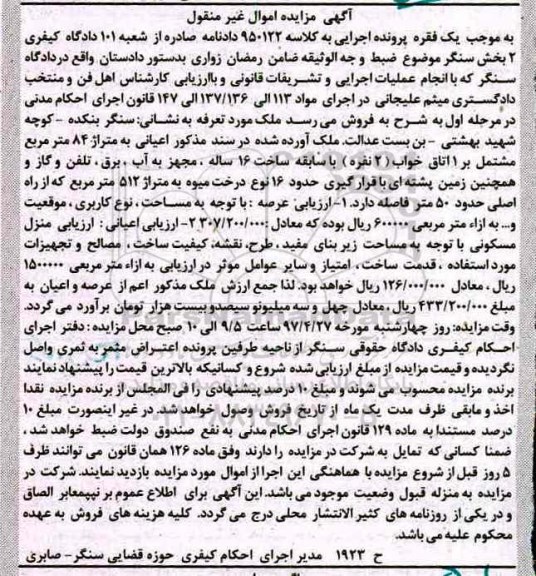 آگهی مزایده اموال غیر منقول
به موجب یک فقره پرونده اجرایی به کلاسه ۹۵۰۱۲۲ دادنامه صادره از شعبه ۱۰۱ دادگاه کیفری
۲ بخش سنگر موضوع ضبط وجه الوثیقه ضامن رمضان زواری بدستور دادستان واقع در دادگاه
سنگر که با انجام عملیات اجرایی و تشریفات قانونی و با ارزیابی کارشناس اهل فن و منتخب
دادگستری میثم علیجانی در اجرای مواد ۱۱۳ الی ۱۳۷/۱۳۶ الی ۱۴۷ قانون اجرای احکام مدنی
در مرحله اول به شرح به فروش می رسد ملک مورد تعرفه به نشانی: سنگر بنکده - کوچه
شهید بهشتی - بن بست عدالت. ملک آورده شده در سند مذکور اعیانی به متراژ ۸۴ متر مربع
مشتمل بر ۱ اتاق خواب (۲ نفره) با سابقه ساخت ۱۶ ساله ، مجهز به آب ، برق ، تلفن و گاز و
همچنین زمین پشته ای با قرار گیری حدود ۱۶ نوع درخت میوه به متراژ ۵۱۲ متر مربع که از راه
اصلی حدود ۵۰ متر فاصله دارد. ۱- ارزیابی: عرصه : با توجه به مساحت ، نوع کاربری ، موقعیت
و... به ازاء متر مربعی ۶۰۰۰۰۰ ریال بوده که معادل :۳۰۷/۲۰۰/۰۰۰ ۲- ارزیابی اعیانی : ارزیابی منزل
مسکونی با توجه به مساحت زیر بنای مفید ، طرح، نقشه، کیفیت ساخت ، مصالح و تجهیزات
مورد استفاده ، قدمت ساخت ، امتیاز و سایر عوامل موثر در ارزیابی به ازاء متر مربعی ۱۵۰۰۰۰۰
ریال ، معادل ۱۲۶/۰۰۰/۰۰۰ ریال خواهد بود. لذا جمع ارزش ملک مذکور اعم از عرصه و اعیان به
مبلغ ۴۳۳/۲۰۰/۰۰۰ ریال معادل چهل و سه میلیون و سیصد و بیست هزار تومان برآورد می گردد.
وقت مزایده: روز چهارشنبه مورخه ۹۷/۴/۲۷ ساعت ۹/۵ الی ۱۰ صبح محل مزایده : دفتر اجرای
احکام کیفری دادگاه حقوقی سنگر از ناحیه طرفین پرونده اعتراض مثمر به ثمری واصل
نگردیده و قیمت مزایده از مبلغ ارزیابی شده شروع و کسانیکه بالاترین قیمت را پیشنهاد نمایند
برنده مزایده محسوب می شوند و مبلغ ۱۰ درصد پیشنهادی را فی المجلس از برنده مزایده نقدا
اخذ و مابقی ظرف مدت یک ماه از تاریخ فروش وصول خواهد شد. در غیر اینصورت مبلغ ۱۰
درصد مستندا به ماده ۱۲۹ قانون اجرای احکام مدنی به نفع صندوق دولت ضبط خواهد شد ،
ضمنا کسانی که تمایل به شرکت در مزایده را دارند وفق ماده ۱۲۶ همان قانون می توانند ظرف
۵ روز قبل از شروع مزایده با هماهنگی این اجرا از اموال مورد مزایده بازدید نمایند. شرکت در
مزایده به منزله قبول وضعیت موجود می باشد. این آگهی برای اطلاع عموم بر معابر الصاق
و در یکی از روزنامه های کثیر الانتشار محلی درج می گردد. کلیه هزینه های فروش به عهده
محکوم علیه می باشد.
ح ۱۹۲۳ مدیر اجرای احکام کیفری حوزه قضایی سنگر - صابری